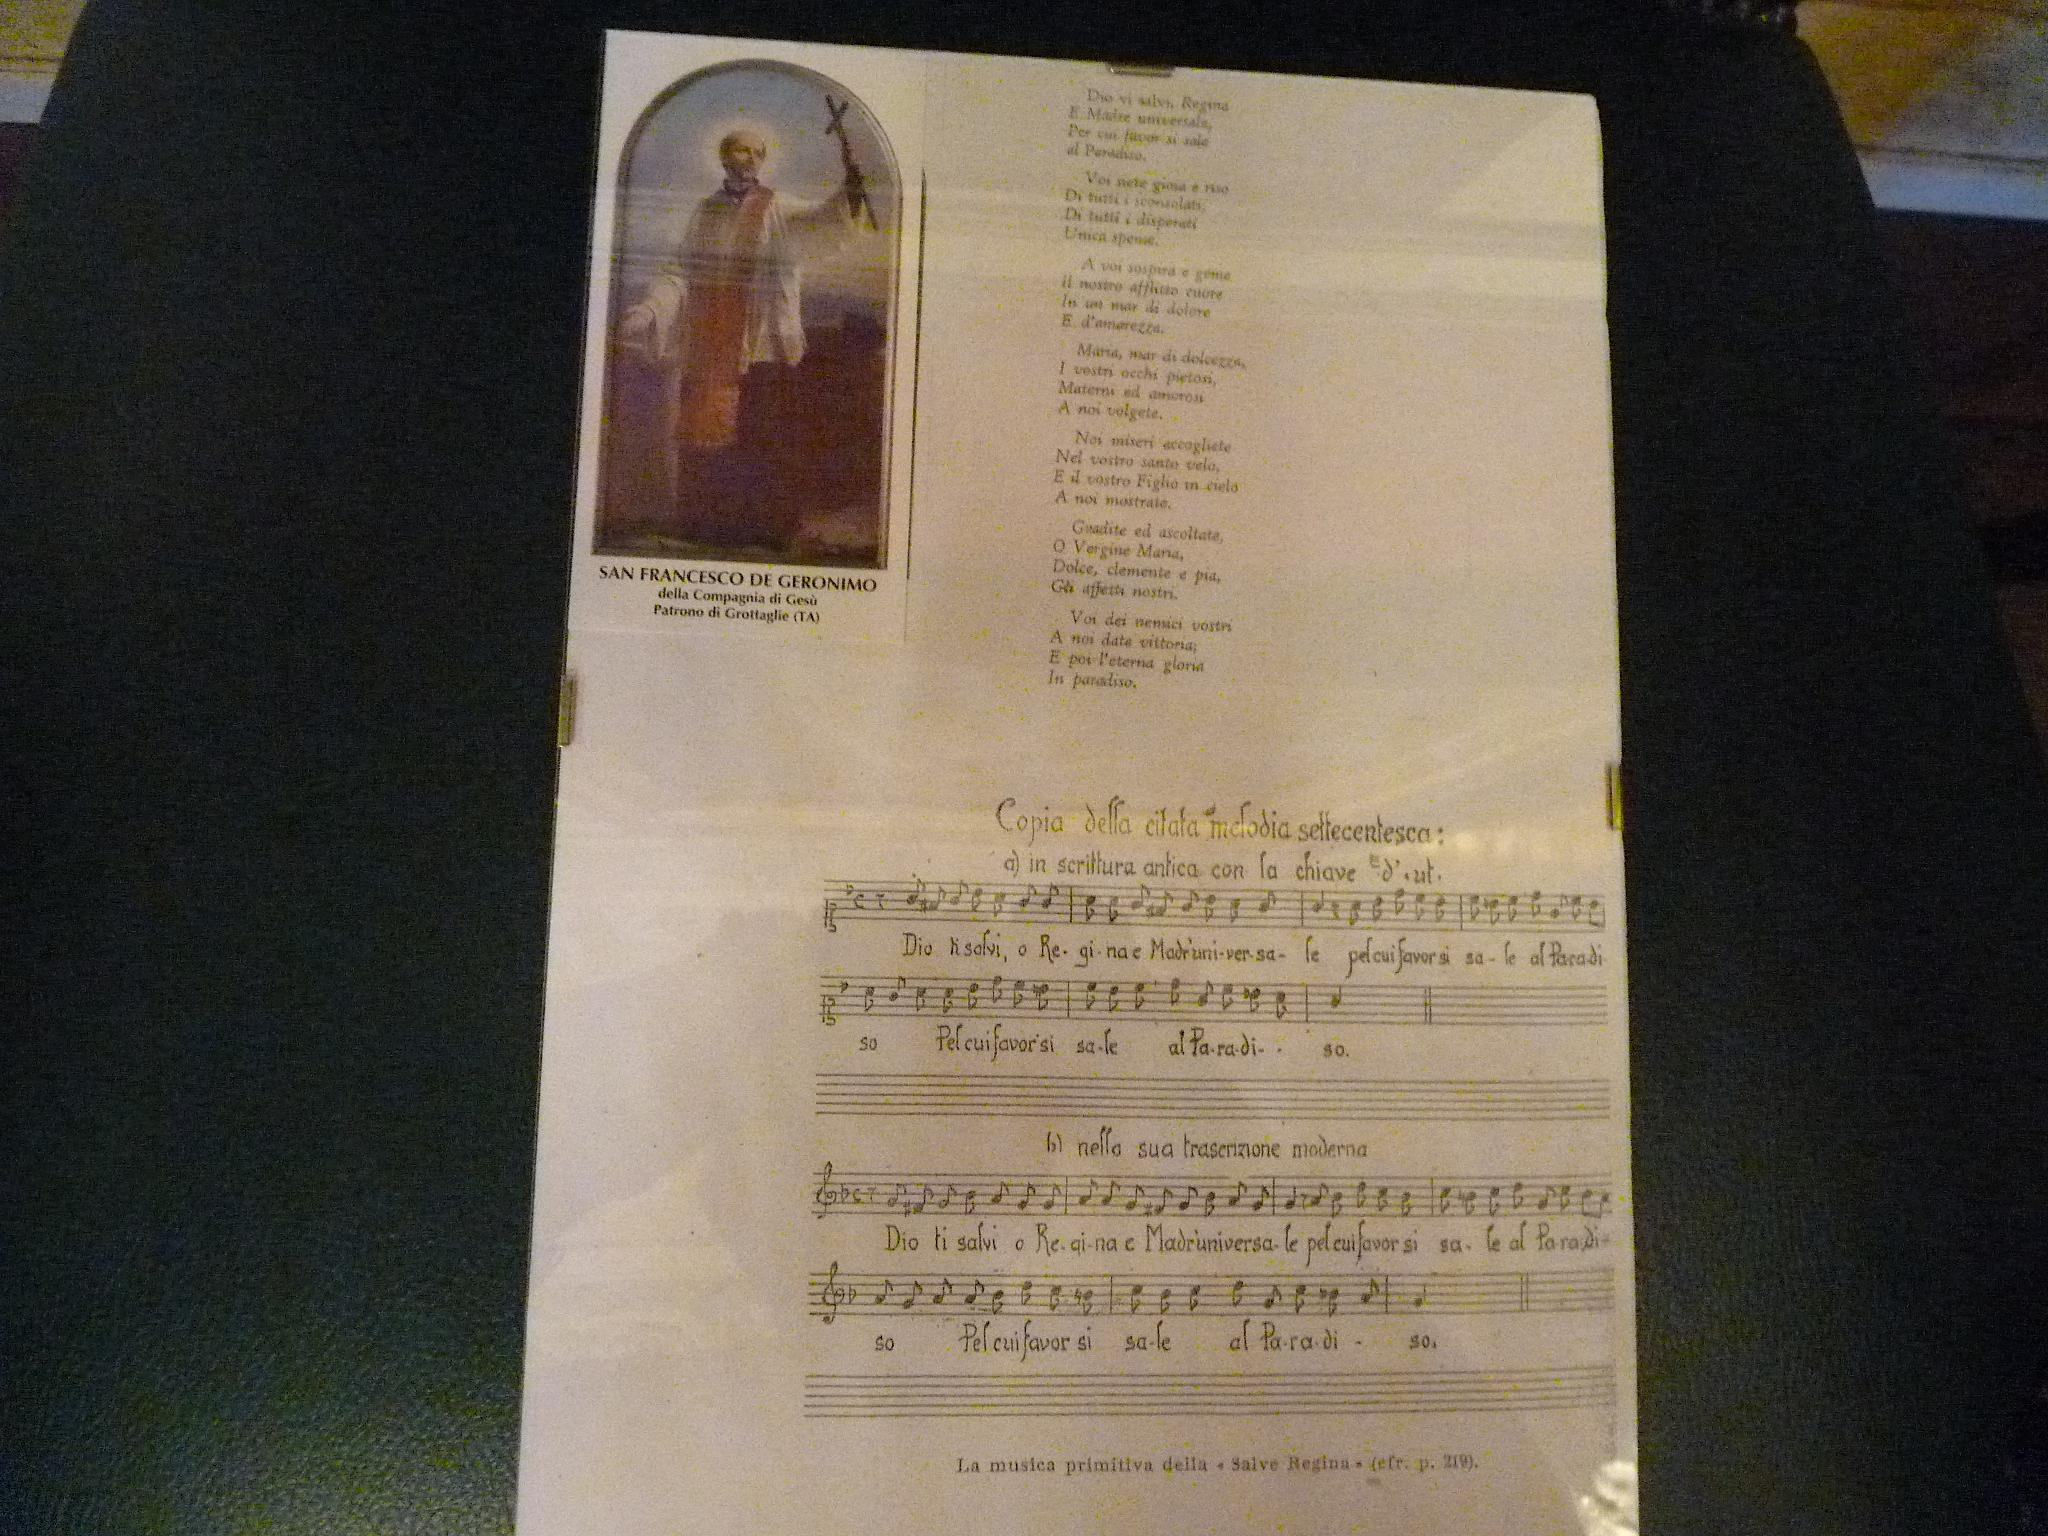 SAN FRANCESCO DE GERONIMO
della Compagnia di Gesù
Patrono di Grottaglie (TA)
Dio vi salvi, Regina
E Madre universale,
Per cui favor si sale
al Paradiso.
Voi siete gioia e riso
Di tutti i sconsolati,
Di tutti i disperati
Unica speme.
A voi sospira e geme
Il nostro afflitto cuore
In un mar di dolore
E d'amarezza.
Maria, mar di dolcezza,
I vostri occhi pietosi,
Materni ed amorosi
A noi volgete.
Noi miseri accogliete
Nel vostro santo velo,
E il vostro Figlio in cielo
A noi mostrate.
Gradite ed ascoltate,
O Vergine Maria,
Dolce, clemente e pia,
Gli affetti nostri.
Voi dei nemici vostri
A noi date vittoria;
E poi l'eterna gloria
In paradiso.
Copia della citata melodia settecentesca:
a) in scrittura antica con la chiave d'ut.
Dio ti salvi, o Re- gi-na e Madr'uni-ver-sa- le pel cui favor si sa- le al Para-di
so Pel cui favor si sa-le al Pa-ra-di- - so.
b) nella sua trascrizione moderna
Dio ti salvi o Re-gi-na e Madr'universa-le pel cui favor si sa- le al Para-di-
so Pel cui favor si sa-le al Pa-ra-di - so.
La musica primitiva della « Salve Regina » (cfr. p. 219).